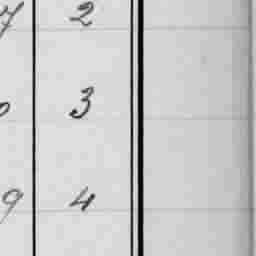 7 2
0 3
9 4